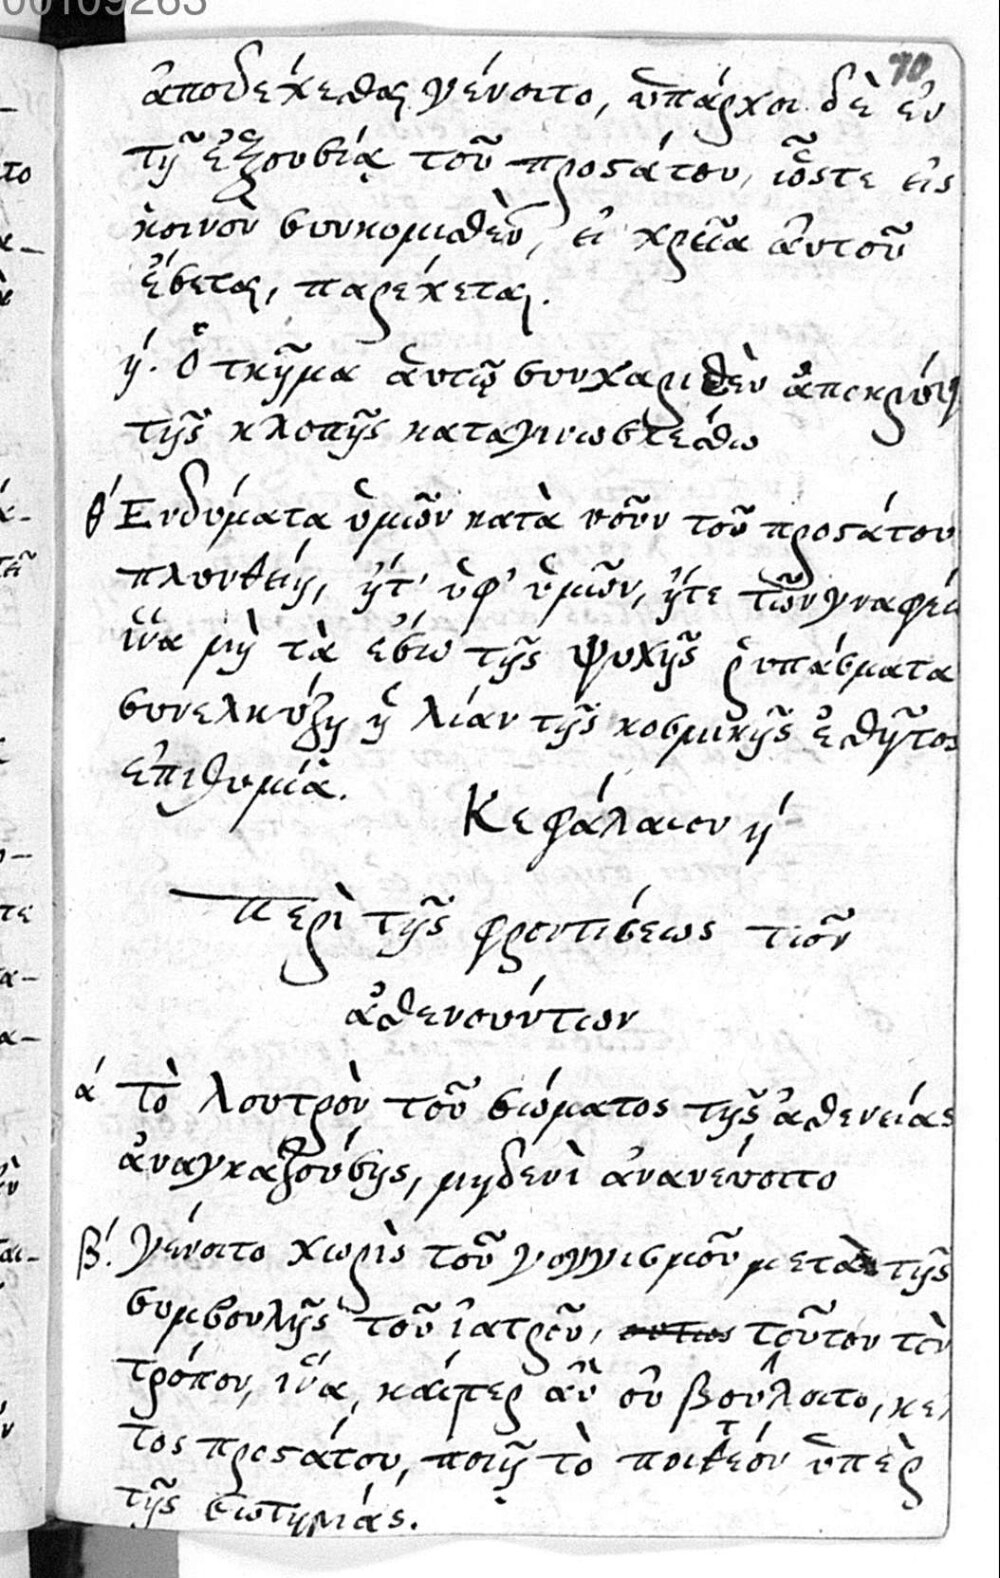 00109263
70
ἀποδέχεσθαι γένοιτο, ὑπάρχοι δὲ ἐν
τῇ ἐξουσίᾳ τοῦ προστάτου, ὥστε εἰς
κοινὸν συνκομισθὲν, εἰ χρεῖα ἀυτοῦ
ἔσεται, παρέχεται.
ή. Ὃ τμῆμα ἀυτῷ συνχαρισθὲν ἀποκρύπ
τῆς κλοπῆς καταγινωσκέσθω
θ́ Ἐνδύματα ὑμῶν κατὰ νοῦν τοῦ προστάτου
πλυνθείη, ἤτ' ὑφ' ὑμῶν, ἤτε τῶν γναφέω
ἵνα μὴ τὰ ἔσω τῆς ψυχῆς ῥυπάσματα
συνελκύζῃ ἡ λίαν τῆς κοσμικῆς ἐσθῆτος
ἐπιθυμία.
Κεφάλαιον ή
Περὶ τῆς φροντίσεως τῶν
ἀσθενούντων
ά Τὸ λουτρὸν τοῦ σώματος τῆς ἀσθενείας
ἀναγκαζούσης, μηδενὶ ἀνανεύοιτο
β́. γένοιτο χωρὶς τοῦ γογγισμοῦ μετὰ τῆς
συμβουλῆς τοῦ ἰατροῦ, οὕτως τοῦτον τὸν
τρόπον, ἵνα, καίπερ ἂν οὐ βούλοιτο, κε
τος προστάτου, ποιῇ τὸ ποιητέον ὑπὲρ
τῆς σωτηρίας.